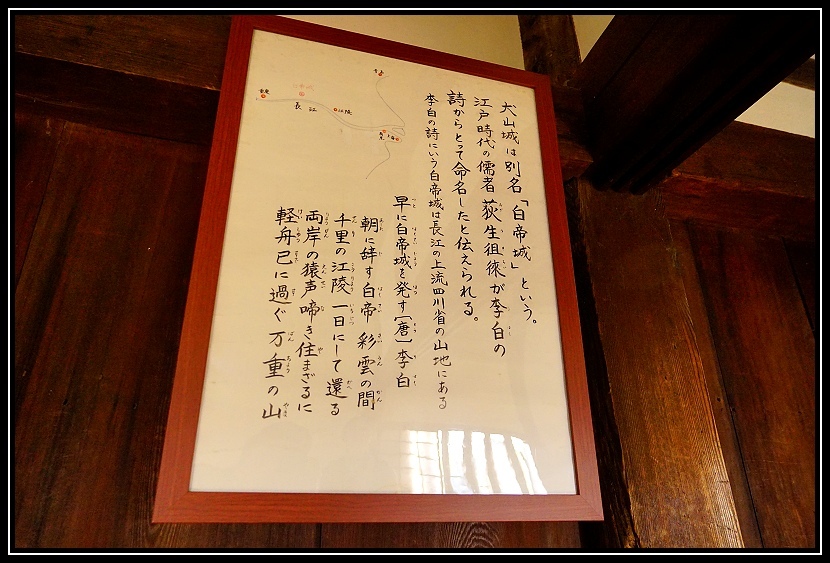 犬山城は別名「白帝城」という。
江戸時代の儒者 荻生徂徠が李白の
詩からとって命名したと伝えられる。
李白の詩にいう白帝城は長江の上流四川省の山地にある
早に白帝城を発す[唐]李白
朝に辞す白帝 彩雲の間
千里の江陵 一日にして還る
両岸の猿声啼き住まざるに
軽舟已に過ぐ 万重の山
長江
江陵